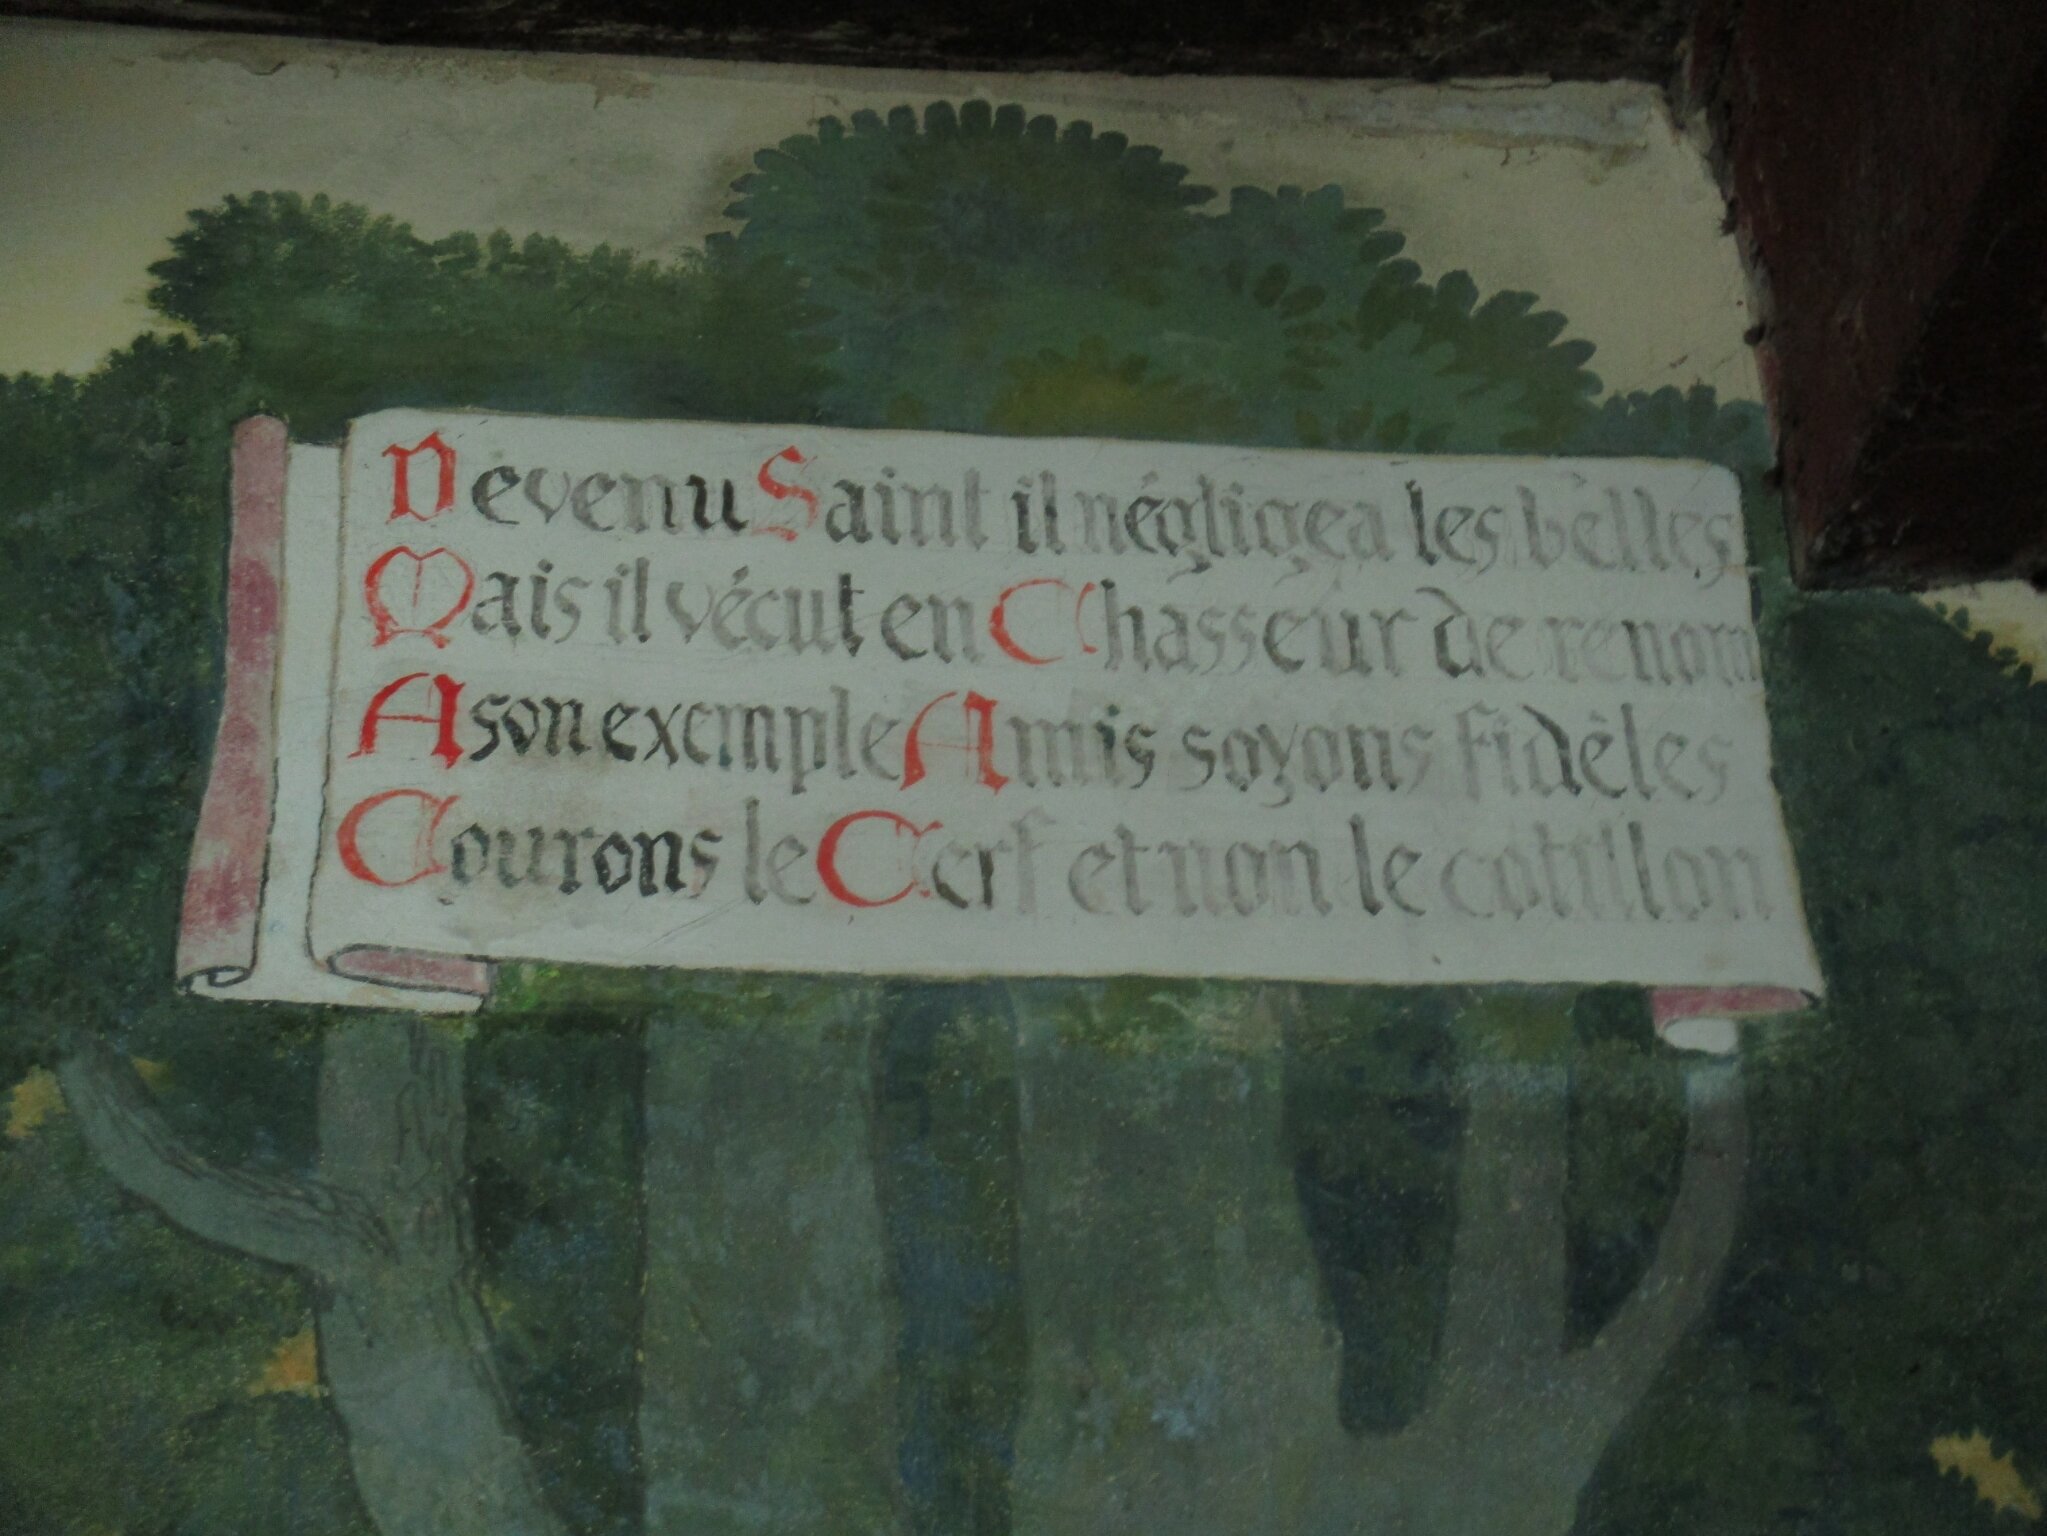 Devenu Saint il négligea les belles
Mais il vécut en Chasseur de renom
A son exemple Amis soyons fidèles
Courons le Cerf et non le cotillon